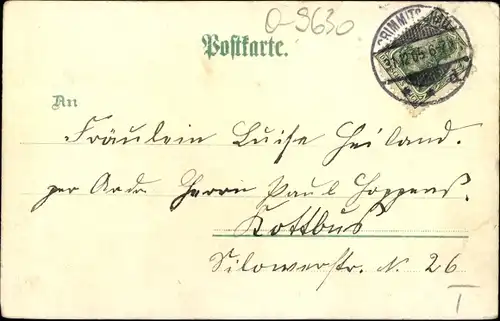 O-9630
Postkarte.
An
Fräulein Luise Heiland.
per Adr. Herrn Paul Hoppens.
Kottbus
Silowerstr. N. 26
T